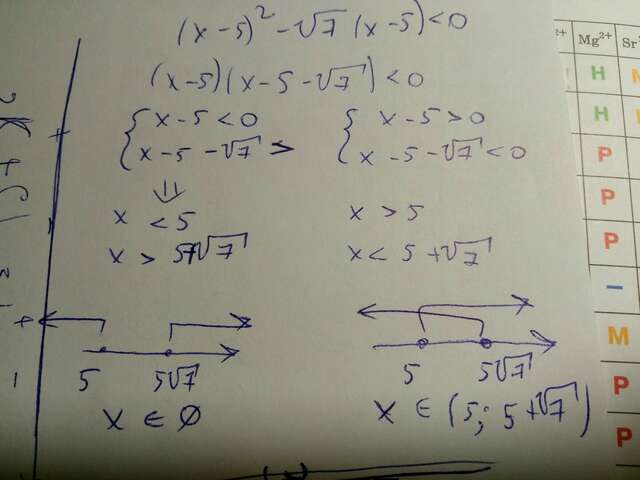 (x-5)² - √7 (x-5) < 0
(x-5)(x-5-√7) < 0
{ x-5 < 0
x-5-√7 >
{ x-5 > 0
x-5-√7 < 0
⇓
x < 5
x > 5+√7
x > 5
x < 5+√7
5 5√7
x ∈ ∅
5 5√7
x ∈ (5; 5+√7)
2+ Mg²⁺ Sr
H
H
P
P
P
–
M
P
P